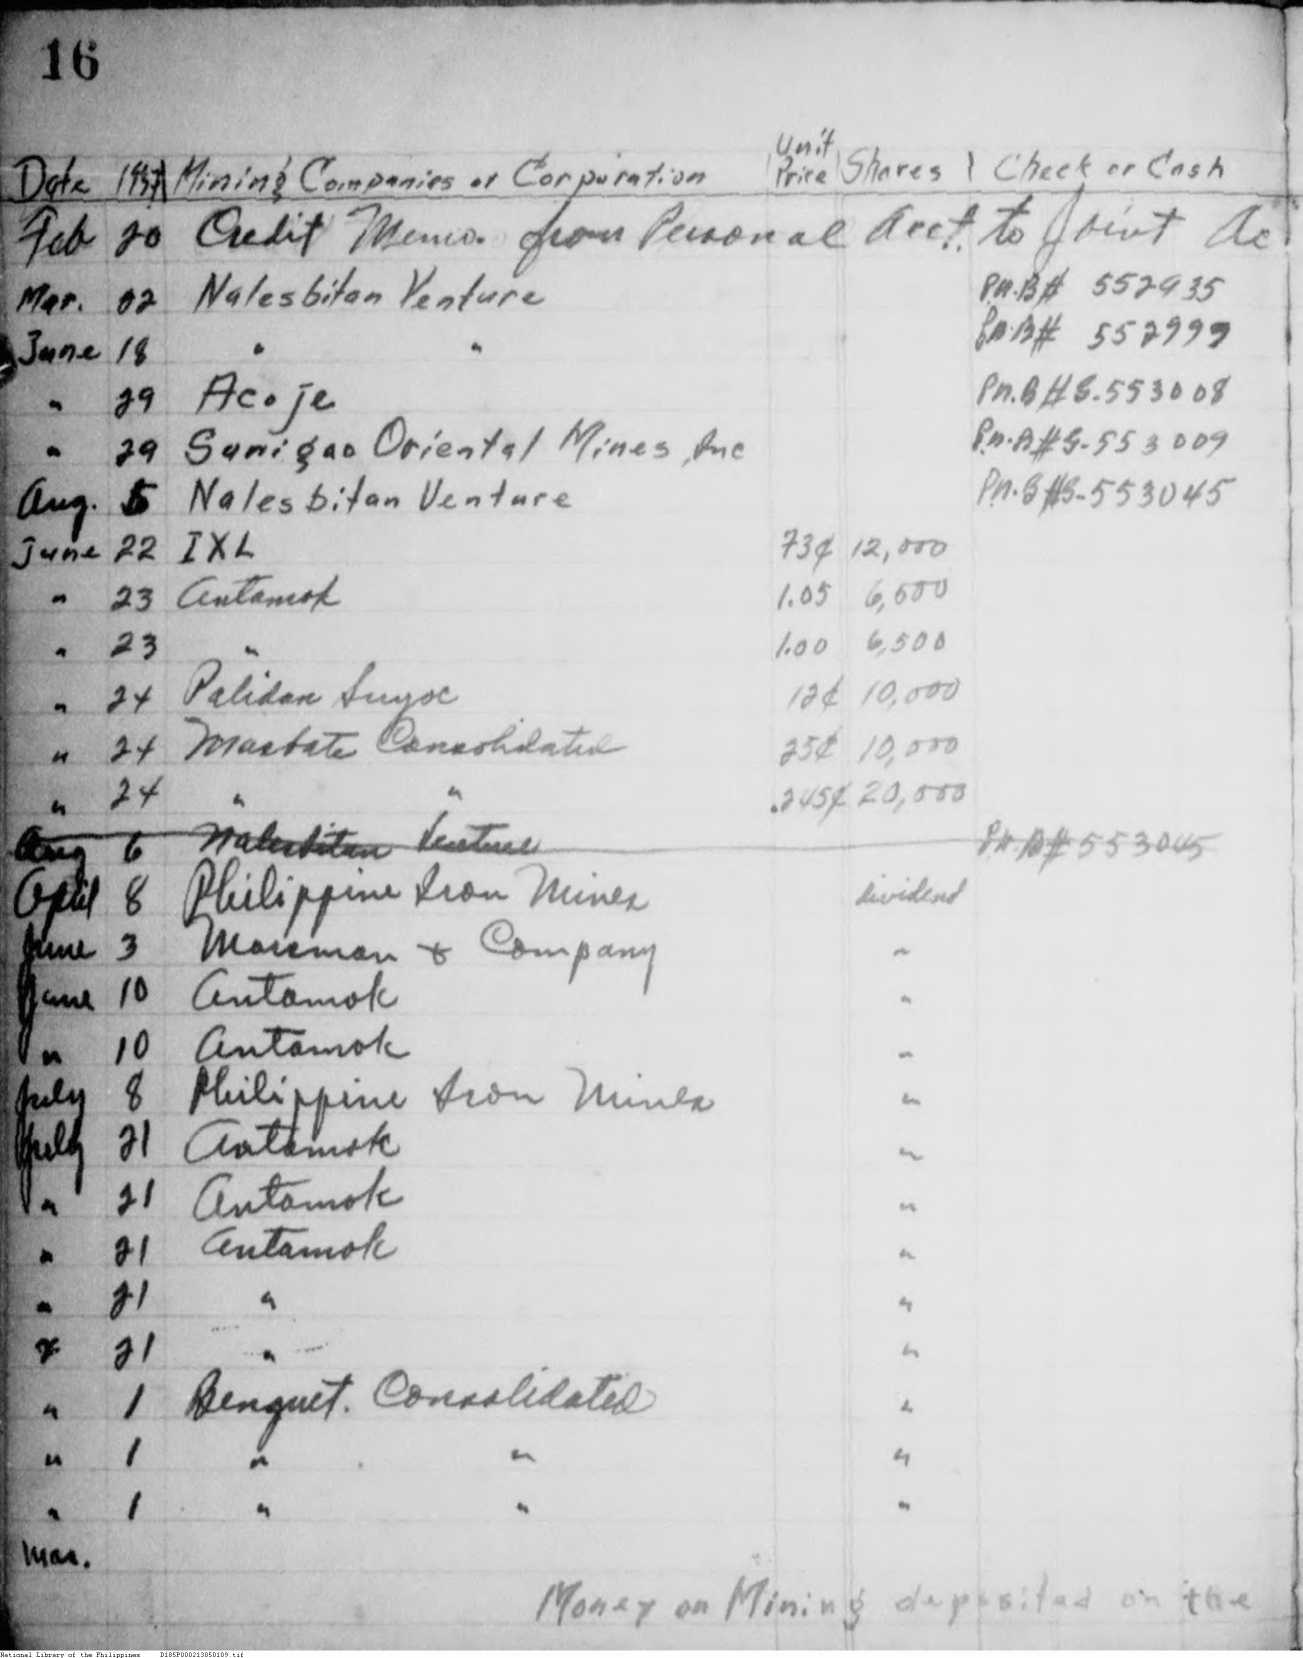 16
Date 1937 Mining Companies or Corporation Unit Price Shares Check or Cash
Feb 20 Credit Memo. from Personal Acct. to Joint Ac.
Mar. 02 Nalesbitan Venture Pn.B# 552935
June 18 " " Pn.B# 552999
" 29 Acoje Pn.B#S-553008
" 29 Surigao Oriental Mines, Inc Pn.B#S-553009
Aug. 5 Nalesbitan Venture Pn.B#S-553045
June 22 IXL 73¢ 12,000
" 23 Antamok 1.05 6,500
" 23 " 1.00 6,500
" 24 Palidan Suyoc 12¢ 10,000
" 24 Masbate Consolidated 25¢ 10,000
" 24 " " .245¢ 20,000
Aug 6 Nalesbitan Venture Pn.B# 553045
April 8 Philippine Iron Mines dividend
June 3 Marsman & Company "
June 10 Antamok "
" 10 Antamok "
July 8 Philippine Iron Mines "
July 21 Antamok "
" 21 Antamok "
" 21 Antamok "
" 21 " "
" 21 " "
" 1 Benguet. Consolidated "
" 1 " " "
" 1 " " "
Mar.
Money on Mining deposited on the
National Library of the Philippines D185P000213850109.tif